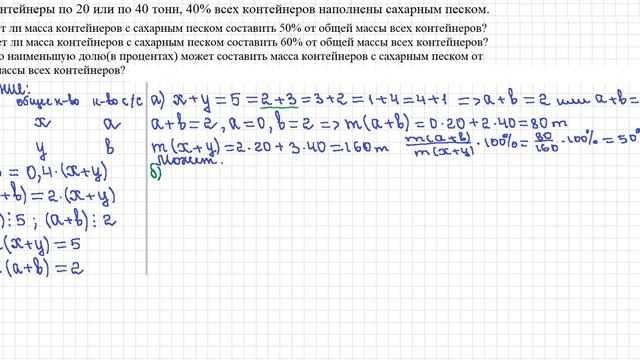 нтейнеры по 20 или по 40 тонн, 40% всех контейнеров наполнены сахарным песком.
ет ли масса контейнеров с сахарным песком составить 50% от общей массы всех контейнеров?
ет ли масса контейнеров с сахарным песком составить 60% от общей массы всех контейнеров?
ю наименьшую долю(в процентах) может составить масса контейнеров с сахарным песком от
массы всех контейнеров?
ние:
общее к-во к-во с/с
x a
y b
= 0,4·(x+y)
+b) = 2·(x+y)
)⋮5 ; (a+b)⋮2
(x+y) = 5
(a+b) = 2
а) x+y = 5 = 2+3 = 3+2 = 1+4 = 4+1 => a+b = 2 или a+b =
a+b = 2, a = 0, b = 2 => m(a+b) = 0·20 + 2·40 = 80 т
m(x+y) = 2·20 + 3·40 = 160 т m(a+b)/m(x+y) · 100% = 80/160 · 100% = 50%
Может.
б)